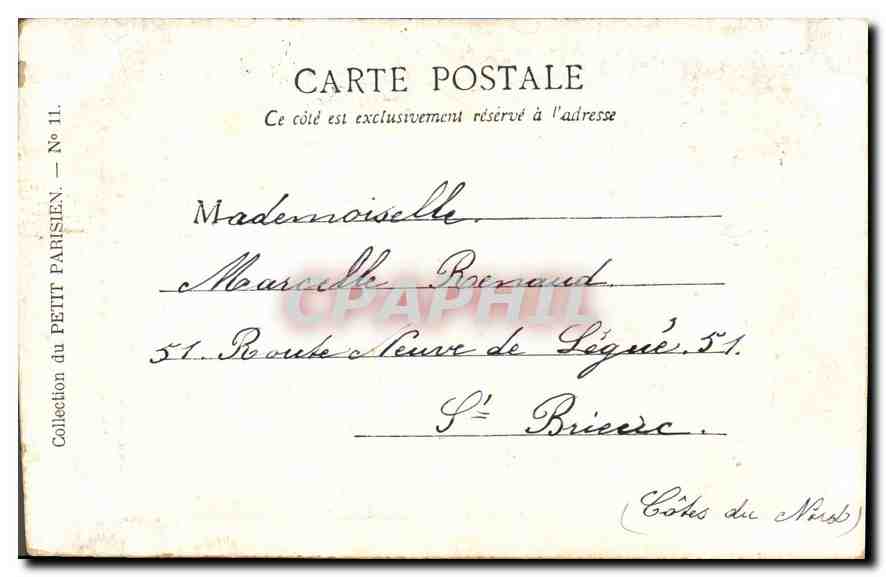 CARTE POSTALE
Ce côté est exclusivement réservé à l'adresse
Collection du PETIT PARISIEN. — Nº 11.
Mademoiselle.
Marcelle Renaud.
CPAPHIL
51. Route Neuve de Légué. 51.
St Brieuc.
(Côtes du Nord)